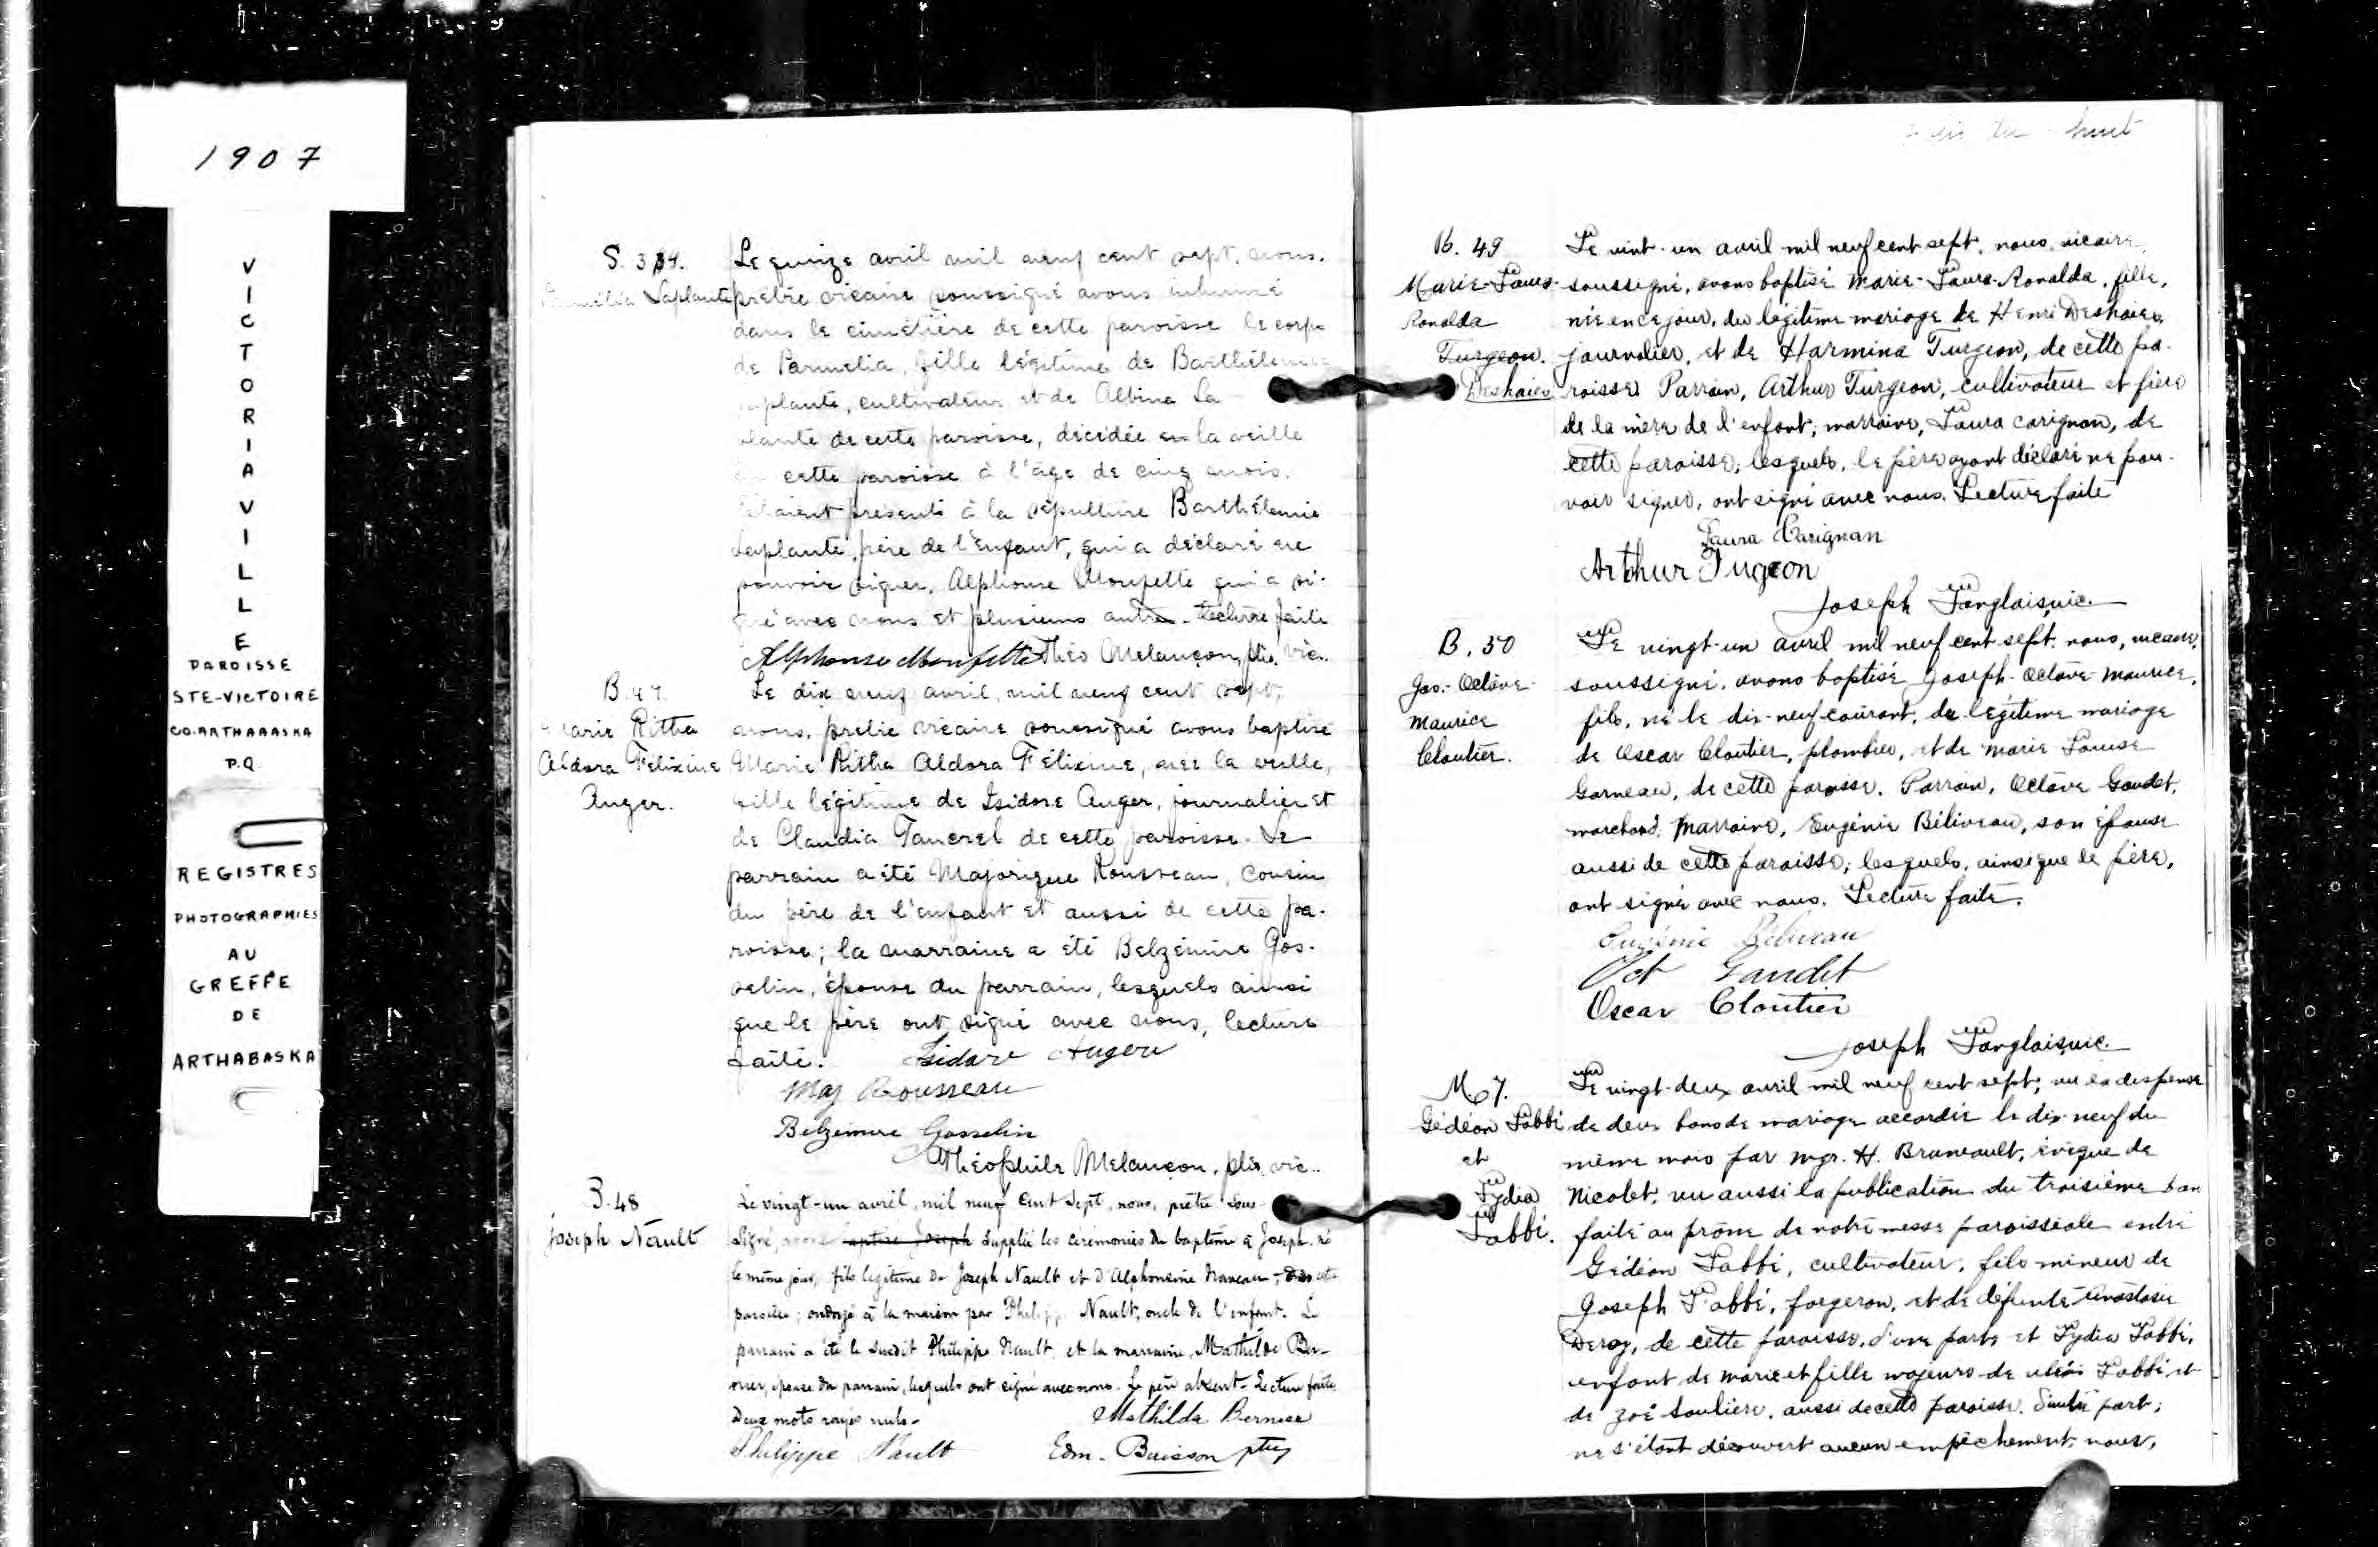 1907
VICTORIAVILLE
PAROISSE
STE-VICTOIRE
CO. ARTHABASKA
P.Q.
REGISTRES
PHOTOGRAPHIES
AU
GREFFE
DE
ARTHABASKA
S. 34.
Laplante
Le quinze avril mil neuf cent sept, nous,
prêtre vicaire soussigné avons inhumé
dans le cimetière de cette paroisse le corps
de Parmelia, fille légitime de Barthélemie
plante, cultivateur et de Albina La
plante de cette paroisse, décédée la veille
cette paroisse à l'âge de cinq mois.
Etaient présents à la sépulture Barthélemie
Laplante, père de l'enfant, qui a déclaré ne
pouvoir signer, Alphonse Monfette qui a si-
gné avec nous et plusieurs autres. Lecture faite
Alphonse Monfette Théo Melançon, ptre, vic.
B. 47.
Marie Ritha
Aldora Félixine
Auger.
Le dix neuf avril, mil neuf cent sept,
nous, prêtre vicaire soussigné avons baptisé
Marie Ritha Aldora Félixine, née la veille,
fille légitime de Isidore Auger, journalier et
de Claudia Tancrel de cette paroisse. Le
parrain a été Majorique Rousseau, cousin
du père de l'enfant et aussi de cette pa-
roisse; la marraine a été Belzémire Gos-
selin, épouse du parrain, lesquels ainsi
que le père ont signé avec nous, lecture
faite. Isidore Auger
Maj Rousseau
Belzemire Gosselin
Théophile Melançon, ptre, vic.
B. 48
Joseph Nault
Le vingt-un avril, mil neuf cent sept, nous, prêtre sous-
signé, avons baptisé Joseph suppléé les cérémonies du baptême à Joseph, né
le même jour, fils légitime de Joseph Nault et d'Alphonsine de cette
paroisse; ondoyé à la maison par Philippe Nault, oncle de l'enfant. Le
parrain a été le susdit Philippe Nault, et la marraine, Mathilde Ber-
nier, épouse du parrain, lesquels ont signé avec nous. Le père absent. Lecture faite.
Deux mots rayés nuls. Mathilda Bernier
Philippe Nault Edm. Buisson ptre
huit
B. 49
Marie-Laura-
Ronalda
Turgeon.
Deshaies
Le vint-un avril mil neuf cent sept, nous, vicaire
soussigné, avons baptisé Marie-Laura-Ronalda, fille,
née en ce jour, du légitime mariage de Henri Deshaies,
journalier, et de Harmina Turgeon, de cette pa-
roisse. Parrain, Arthur Turgeon, cultivateur et frère
de la mère de l'enfant; marraine, Laura Carignan, de
cette paroisse; lesquels, le père ayant déclaré ne pou-
voir signer, ont signé avec nous. Lecture faite
Laura Carignan
Arthur Tugeon
Joseph Langlais, vic.
B. 50
Jos.-Octave-
Maurice
Cloutier.
Le vingt-un avril mil neuf cent sept, nous, vicaire,
soussigné, avons baptisé Joseph-Octave-Maurice,
fils, né le dix-neuf courant, du légitime mariage
de Oscar Cloutier, plombier, et de Marie Louise
Garneau, de cette paroisse. Parrain, Octave Gaudet,
marchand; Marraine, Eugénie Béliveau, son épouse
aussi de cette paroisse; lesquels, ainsi que le père,
ont signé avec nous. Lecture faite.
Eugénie Béliveau
Oct Gaudet
Oscar Cloutier
Joseph Langlais, vic.
M 7.
Gédéon Labbé
et
Lydia
Labbé.
Le vingt-deux avril mil neuf cent sept; vu la dispense
de deux bans de mariage accordée le dix-neuf du
même mois par Mgr. H. Bruneault, évêque de
Nicolet, vu aussi la publication du troisième ban
faite au prône de notre messe paroissiale entre
Gédéon Labbé, cultivateur, fils mineur de
Joseph Labbé, forgeron, et de défunte Anastasie
Deroy, de cette paroisse, d'une part, et Lydia Labbé,
enfant de Marie et fille majeure de Labbé et
de Zoé Soulière, aussi de cette paroisse. D'autre part;
ne s'étant découvert aucun empêchement, nous,